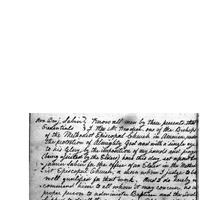 Rev. Benj. Sabin } Know all men by these presents, that
Credentials } I, one of the Bishops
of the Methodist Episcopal Church in America, under
the protection of Almighty God and with a single eye
to his Glory, by the imposition of my hands and prayer
(being assisted by the Elders) have this day, set apart
for the office of an Elder in the Methodist
Episcopal Church, a man whom I judge to be
well qualified for that work. And I do hereby
commend him to all whom it may concern, as a
proper person to administer Baptism and the Lord